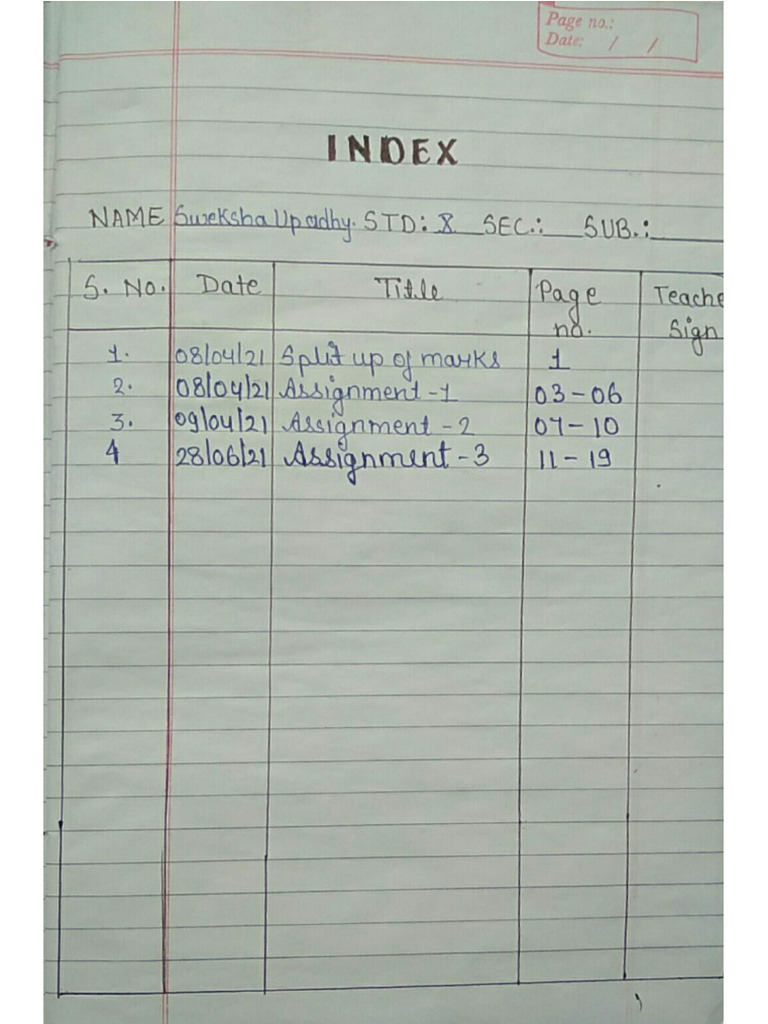 Page no.:
Date: / /
INDEX
NAME Sureksha Upadhy. STD: X SEC.: SUB.:
S. No. Date Title Page no. Teache Sign
1. 08/04/21 Split up of marks 1
2. 08/04/21 Assignment-1 03-06
3. 09/04/21 Assignment-2 07-10
4 28/06/21 Assignment-3 11-19